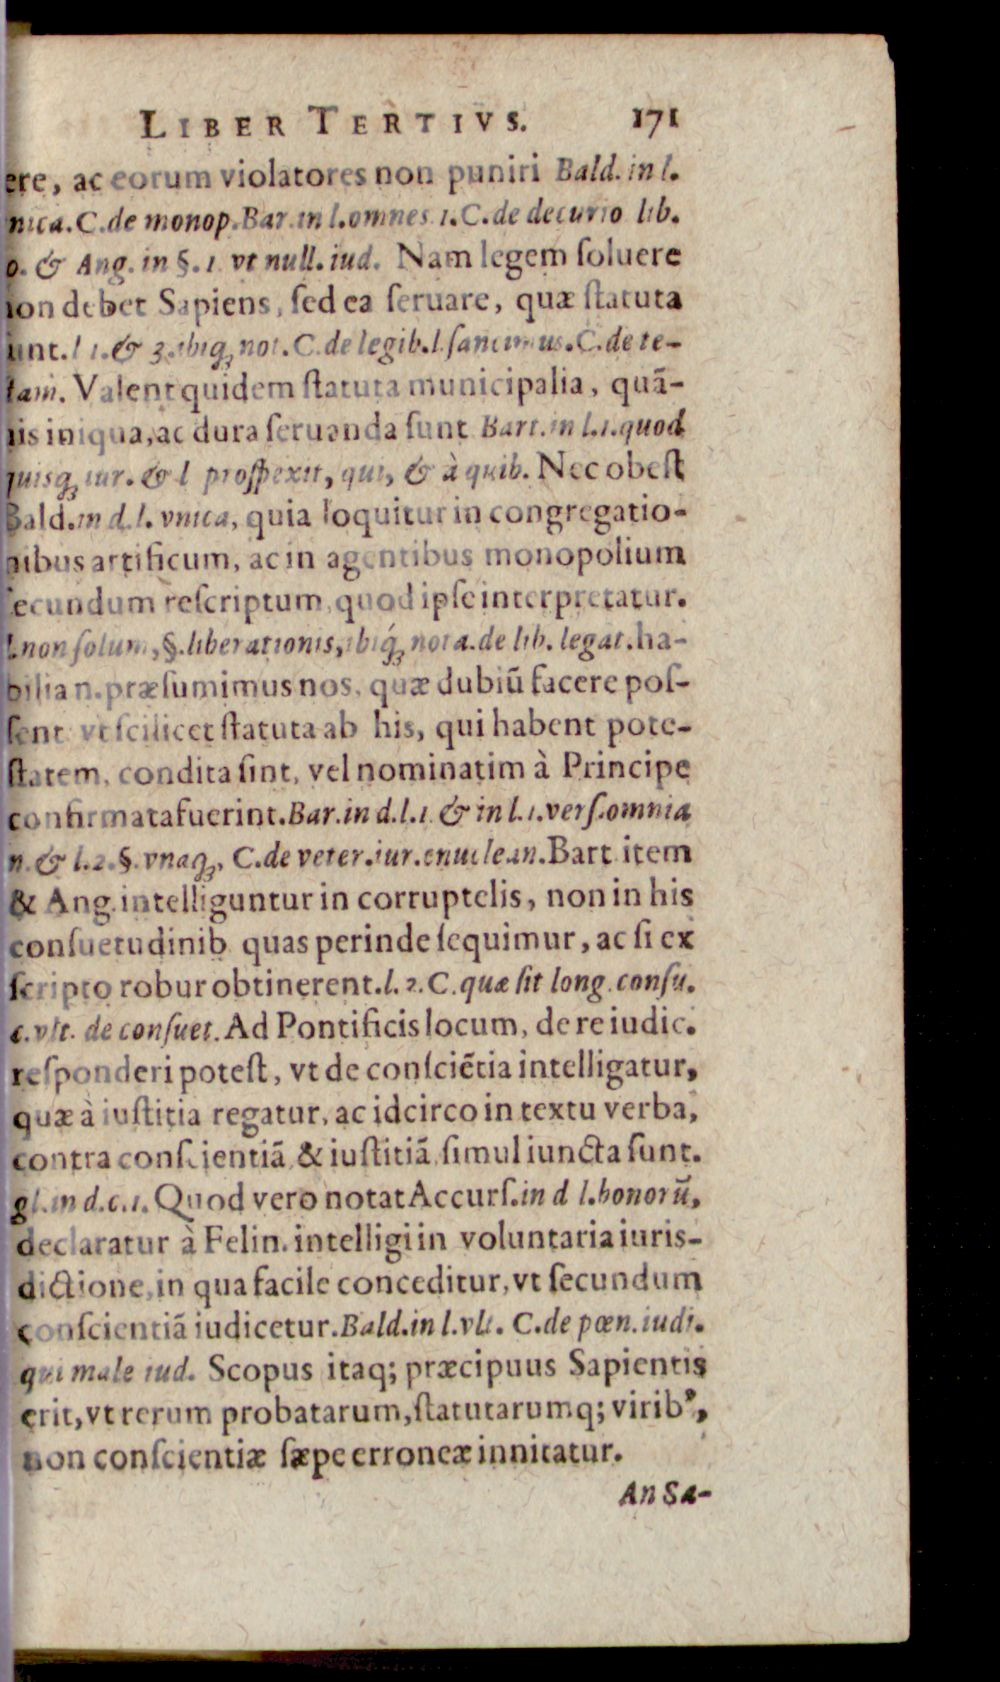 LIBER TERTIVS. 171
ere, ac eorum violatores non puniri Bald. in l.
nica. C. de monop. Bar. in l. omnes 1. C. de decurio lib.
o. & Ang. in §. 1 vt null. iud. Nam legem ſoluere
non debet Sapiens, ſed ea ſeruare, quæ ſtatuta
unt. l 1. & 3. ibiq; not. C. de legib. l. ſancimus. C. de te-
tam. Valent quidem ſtatuta municipalia, quā-
uis iniqua, ac dura ſeruanda ſunt Bart. in l. 1. quod
quisq; iur. & l proſpexit, qui, & à quib. Nec obeſt
Bald. in d. l. vnica, quia loquitur in congregatio-
nibus artificum, ac in agentibus monopolium
ſecundum reſcriptum, quod ipſe interpretatur.
l. non ſolum, §. liberationis, ibiq́; nota. de lib. legat. ha-
bilia n. præſumimus nos, quæ dubiū facere poſ-
ſent vt ſcilicet ſtatuta ab his, qui habent pote-
ſtatem, condita ſint, vel nominatim à Principe
confirmata fuerint. Bar. in d. l. 1. & in l. 1. verſ. omnia
n. & l. 2. §. vnaq;, C. de veter. iur. enuclean. Bart item
& Ang. intelliguntur in corruptelis, non in his
conſuetudinib quas perinde ſequimur, ac ſi ex
ſcripto robur obtinerent. l. 2. C. quæ ſit long. conſu.
c. vlt. de conſuet. Ad Pontificis locum, de re iudic.
reſponderi poteſt, vt de conſciētia intelligatur,
quæ à iuſtitia regatur, ac idcirco in textu verba,
contra conſcientiā, & iuſtitiā, ſimul iuncta ſunt.
gl. in d. c. 1. Quod vero notat Accurſ. in d l. bonorū,
declaratur à Felin. intelligi in voluntaria iuris-
dictione, in qua facile conceditur, vt ſecundum
conſcientiā iudicetur. Bald. in l. vlt. C. de pœn. iudi.
qui male iud. Scopus itaq; præcipuus Sapientis
erit, vt rerum probatarum, ſtatutarumq; virib⁹,
non conſcientiæ ſæpe erroneæ innitatur.
An Sa-